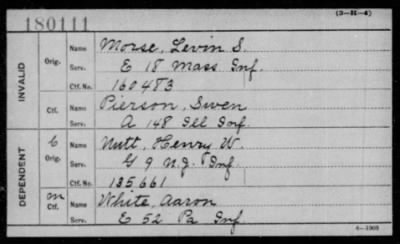 180111
(3-H-4)
INVALID
Orig. Name Morse, Levin S.
Serv. E 18 Mass Inf.
Ctf. No. 160483
Ctf. Name Pierson, Swen
Serv. A 148 Ill Inf.
DEPENDENT
C Orig. Name Nutt, Henry W.
Serv. G 9 N.J. Inf.
Ctf. No. 135661
M Ctf. Name White, Aaron
Serv. E 52 Pa Inf